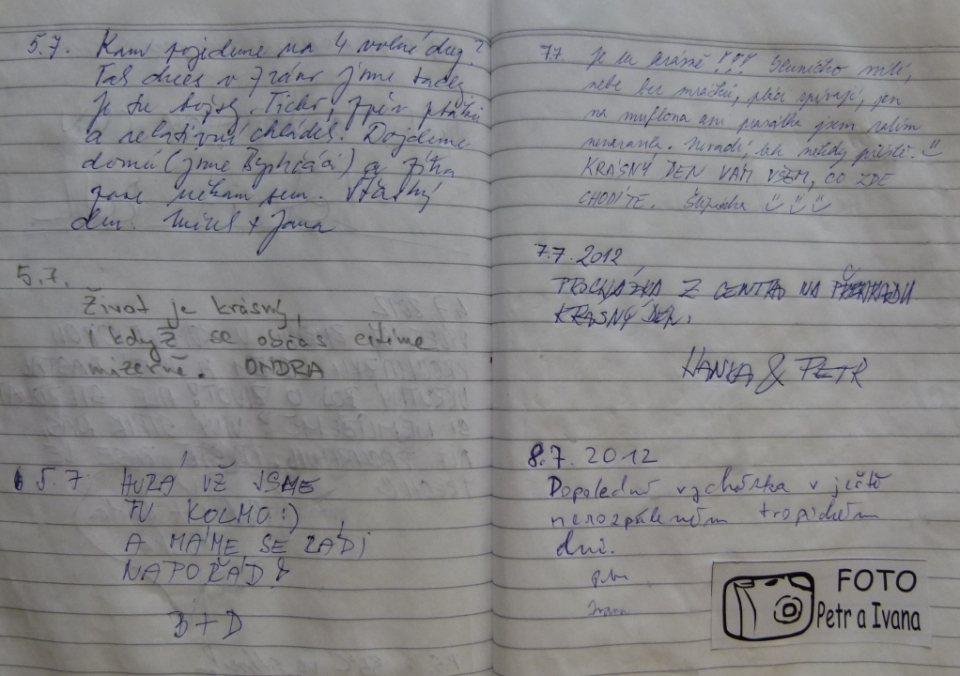 5.7. Kam pojedeme na 4 volné dny?
Tak dnes v 7 ráno jsme tady
je tu hezky. Ticho, zpěv ptáků
a relativní chládek. Dojdeme
domů (jsme Bystrčáci) a zítra
zase někam sem. Šťastný
den. Mirek + Jana
5.7.
Život je krásný,
i když se občas cítíme
mizerně. ONDRA
5.7 HURÁ UŽ JSME
TU KOLMO :)
A MÁME SE RÁDI
NAPOŘÁD
B+D
7.7. Je tu krásně !!! Sluníčko svítí,
nebe bez mráčků, ptáci zpívají, jen
na muflona ani prasátko jsem zatím
nenarazila. Nevadí, tak někdy příště.
KRÁSNÝ DEN VÁM VŠEM, CO ZDE
CHODÍTE.
7.7.2012
PROCHÁZKA Z CENTRA NA PŘEHRADU
KRÁSNÝ DEN.
HANKA & PETR
8.7.2012
Dopolední vycházka v ještě
nerozpáleném tropickém
dni.
Petr
Ivana
FOTO
Petr a Ivana